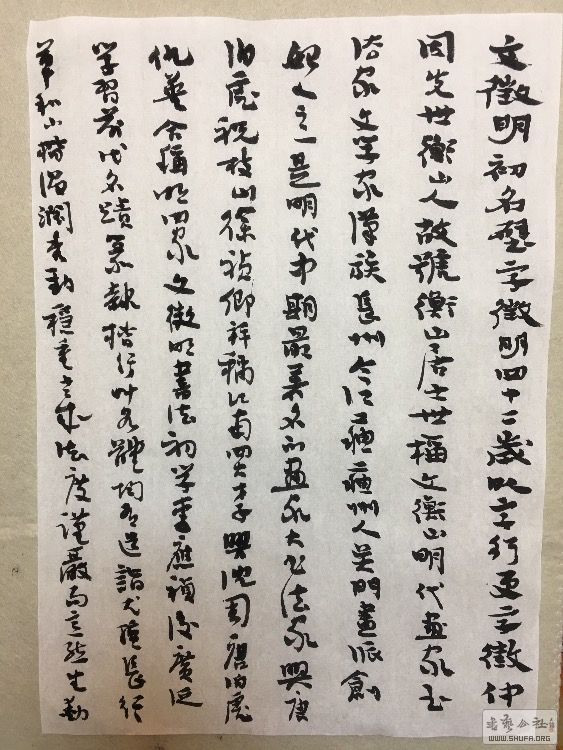 文徵明初名壁字徵明四十二歲以字行更字徵仲
因先世衡山人故號衡山居士世稱文衡山明代畫家書
法家文學家漢族長州今江蘇蘇州人吴門畫派創
始人之一是明代中期最著名的畫家大書法家與唐
伯虎祝枝山徐禎卿并稱江南四大才子與沈周唐伯虎
仇英合稱明四家文徵明書法初學李應禎後廣泛
學習前代名蹟篆隸楷行草各體均有造詣尤擅長行
草和小楷温潤秀勁穩重老成法度謹嚴而意態生動
書藝公社
WWW.SHUFA.ORG